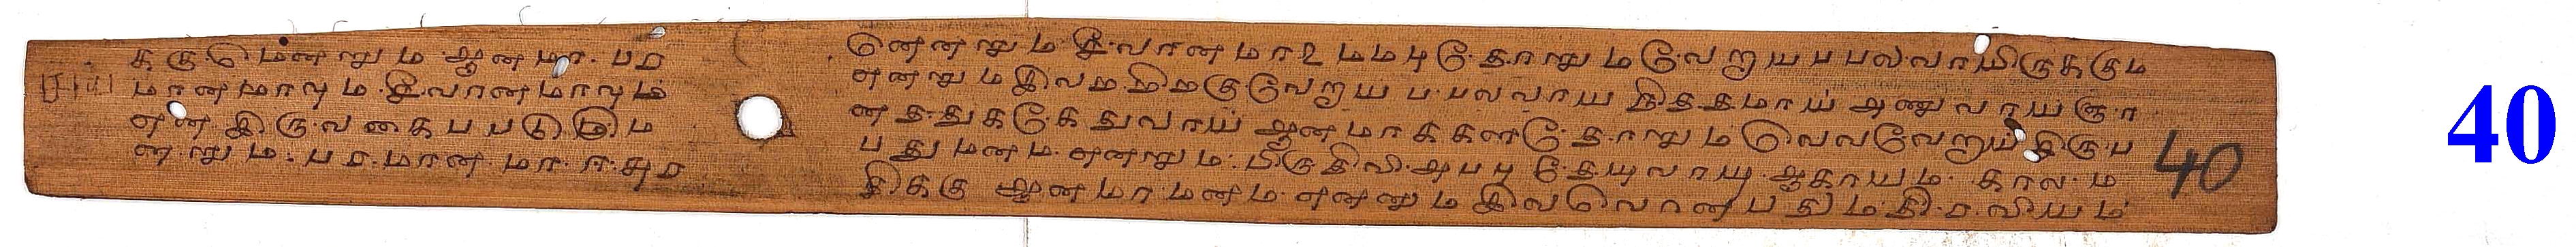 கருமெனறும ஆனமா பர
மானமாவும சீவானமாவும
என இருவகைபபடுமிம
னறும பரமானமா ஈசுர
னெனறும சீவானமா உடமபுதோறும வேறயபபலவாயிருககும
எனறும இவ வேறய பபலவாய நிததமாய அணுவாய ஞா
னததுககேதுவாய ஆனமாககளதோறும வெவவேறய இரு ப
பது மனம எனறும பிருதிவி அபபு தேயுவாயு ஆகாயம காலம
திககு ஆனமா மனம எனனும இவவொனபதும திரவியம
40
40